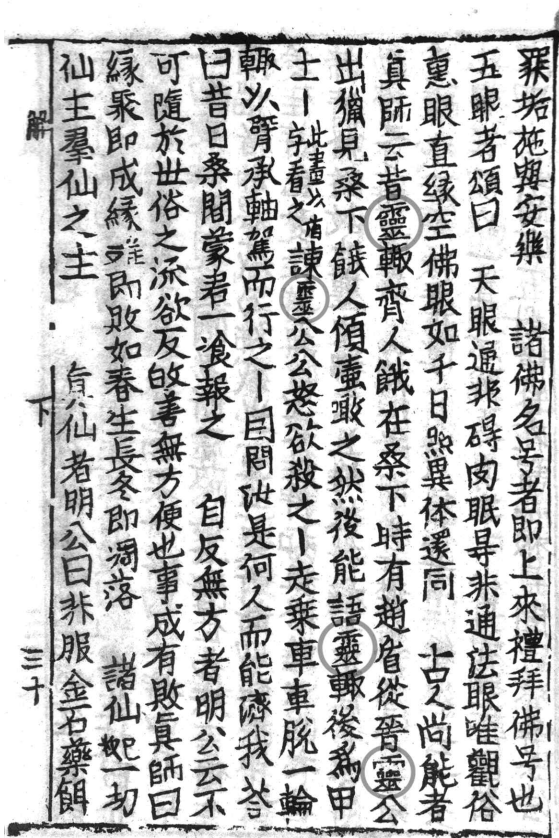 罪垢施與安樂　諸佛名号者即上來禮拜佛号也
五眼者頌曰　天眼通非碍肉眼㝵非通法眼唯觀俗
恵眼直緣空佛眼如千日照異体還同　古人尚能者
真師云昔靈輒齊人餓在桑下時有趙盾從晉靈公
出獵見桑下餓人傾壷噉之然後能語靈輒後為甲
士｜此畫以盾字看之諫靈公公怒欲殺之｜走乗車車脫一輪
輒以臂承軸駕而行之｜因問汝是何人而能濟我荅
曰昔日桑間蒙君一飡報之　自反無方者明公云不
可隨於世俗之流欲反改善無方便也事成有敗真師曰
緣聚即成緣離即敗如春生長冬即凋落　諸仙妃一切
仙主羣仙之主　真人仙者明公曰非服金石藥餌
解　下　三十